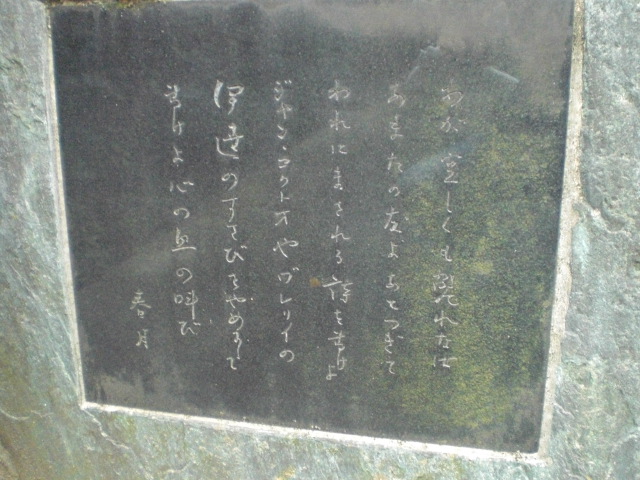 わが空しくも斃れなば
あまたの友よあとつぎて
われにまされる詩を書けよ
ジャン・コクトオやヴレリイの
伊達のすさびをやめにして
書けよ心の血の叫び
春月